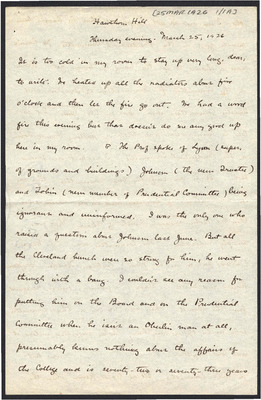 (25 MAR. 1926 1/1A)
Hawthorn Hill
Thursday evening, March 25, 1926
It is too cold in my room to stay up very long, dear,
to write. We heated up all the radiators about five
o'clock and then let the fire go out. We had a wood
fire this evening but that doesn't do me any good up
here in my room. The Prof spoke of Lyon (super.
of grounds and buildings) Johnson (the new Trustee)
and Tobin (new member of Prudential Committee) being
ignorant and uninformed. I was the only one who
raised a question about Johnson last June. But all
the Cleveland bunch were so strong for him, he went
through with a bang. I couldn't see any reason for
putting him on the Board and on the Prudential
Committee when he isn't an Oberlin man at all,
presumably knows nothing about the affairs of
the College and is seventy-two or seventy-three years